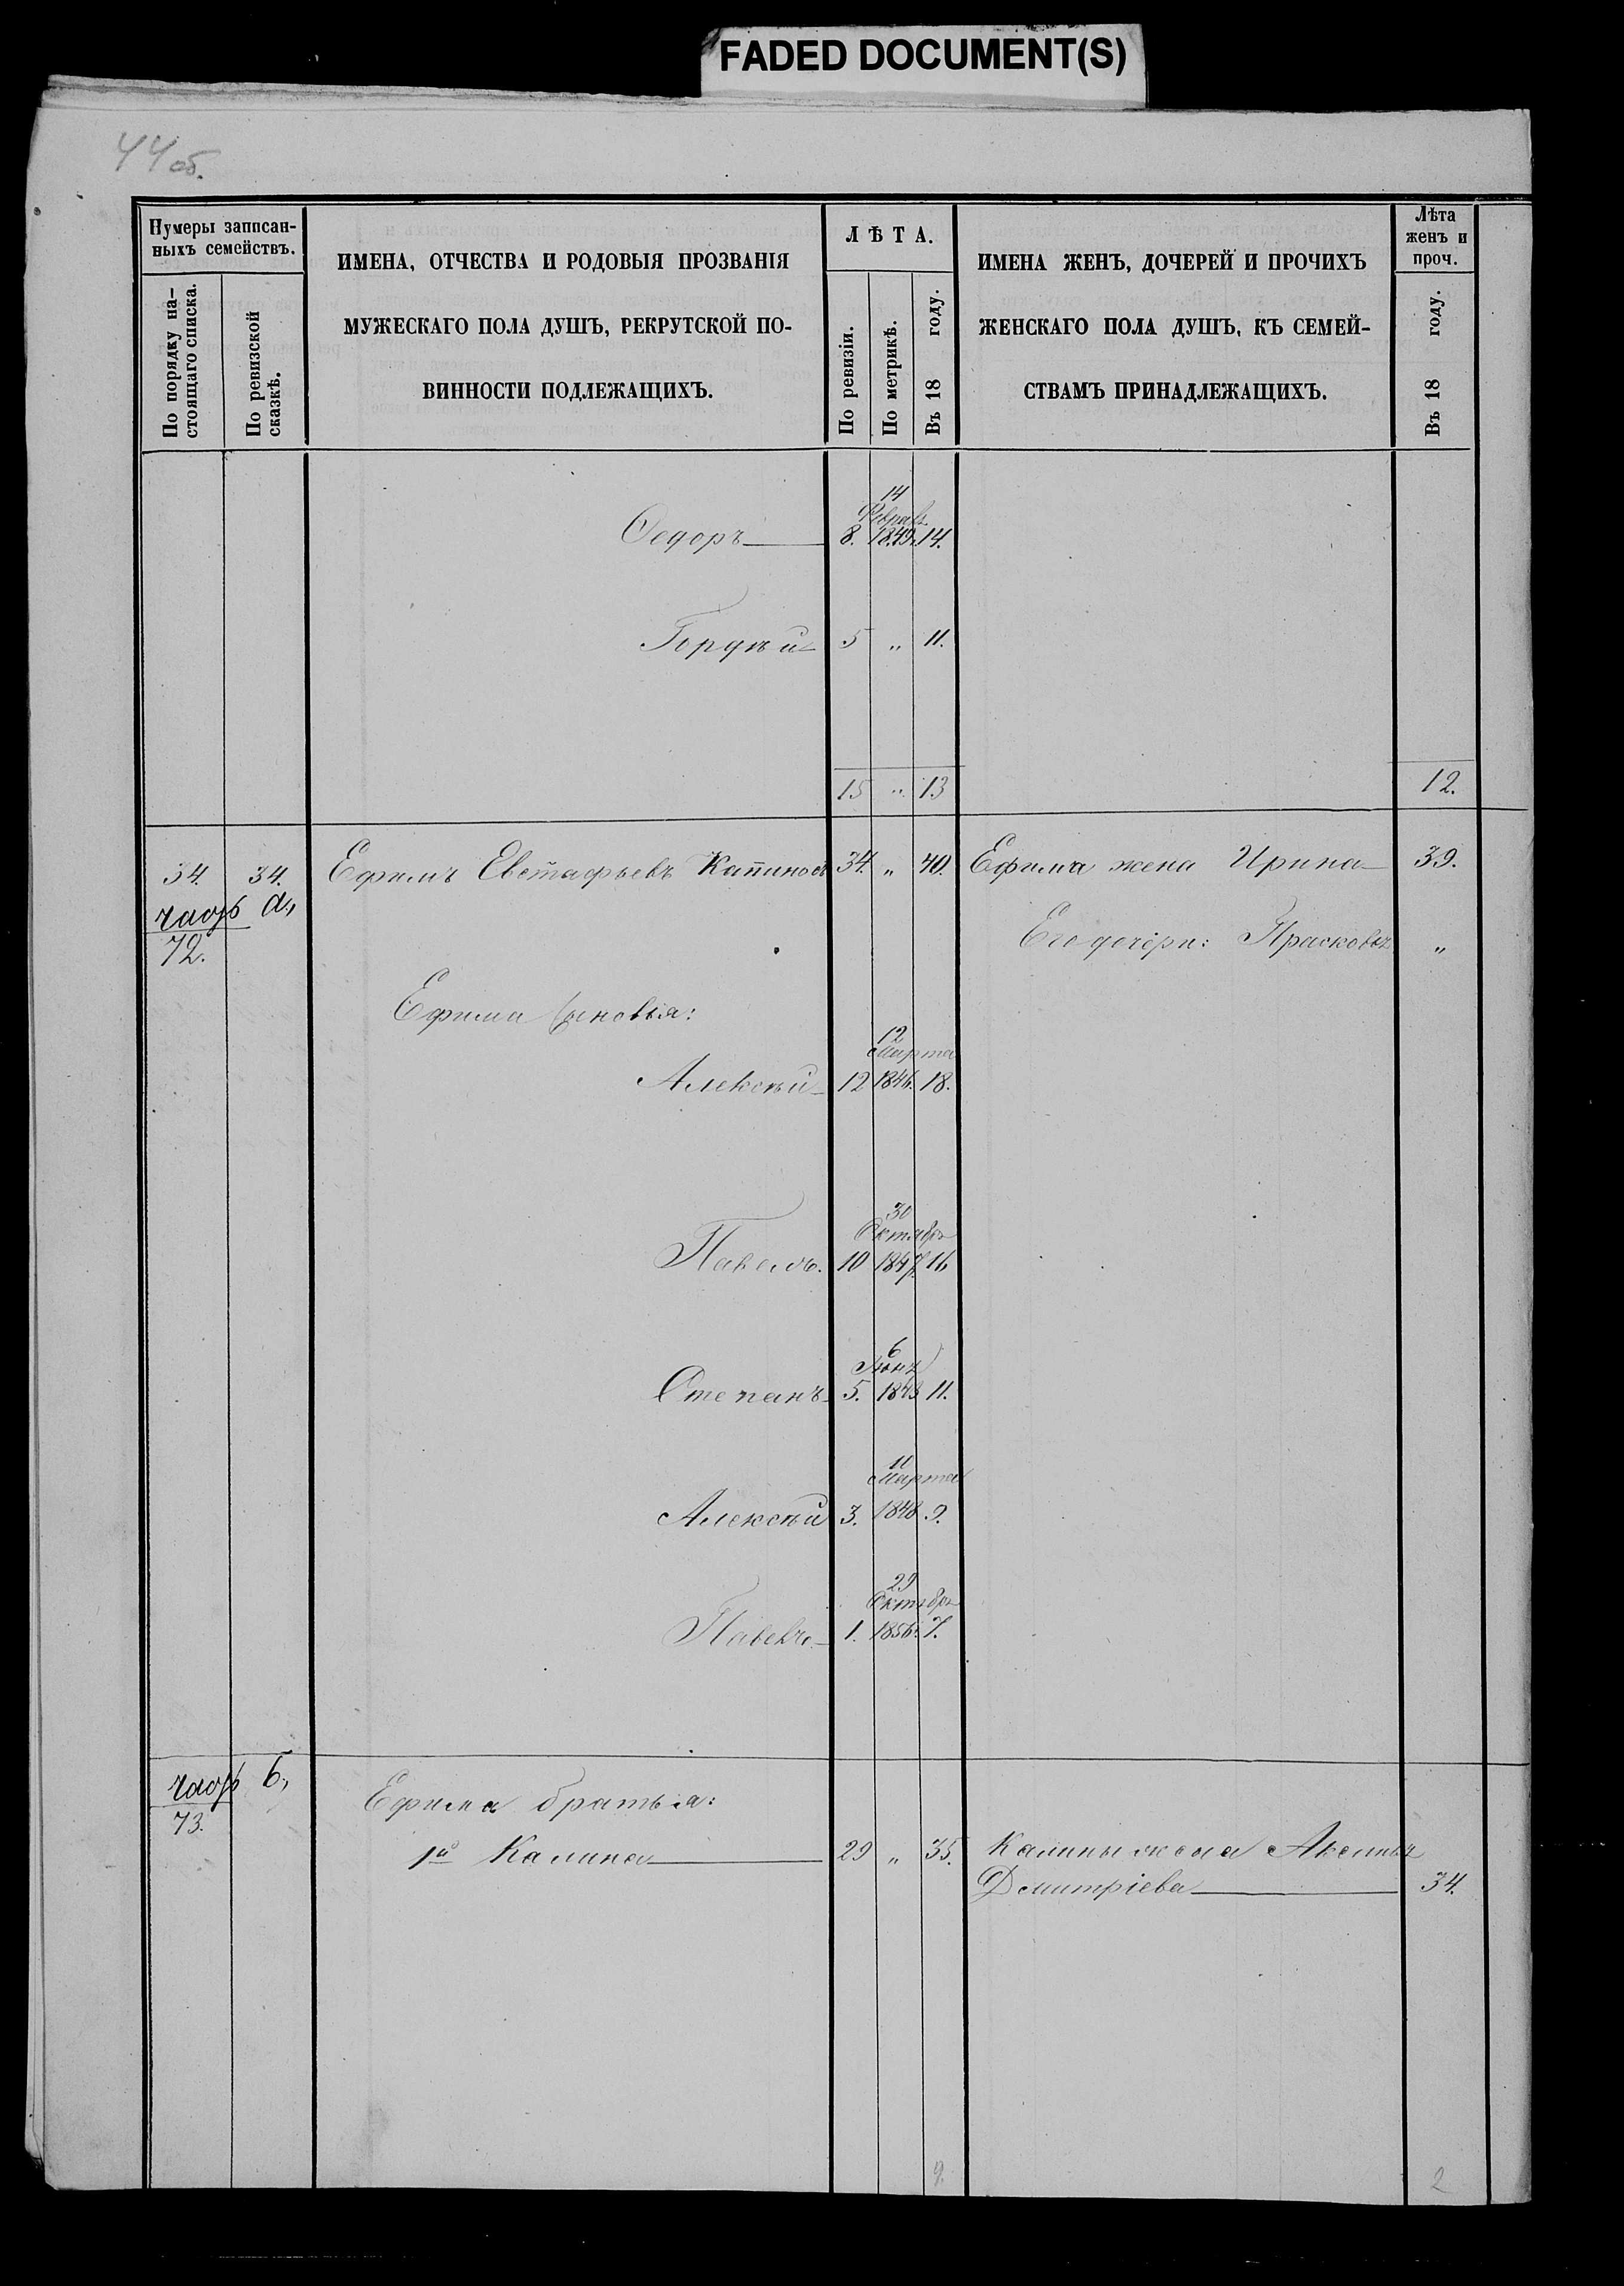 FADED DOCUMENT(S)
44 об.
Нумеры записан-
ныхъ семействъ.
По порядку на-
стоящаго списка.
По ревизской
сказкѣ.
ИМЕНА, ОТЧЕСТВА И РОДОВЫЯ ПРОЗВАНІЯ
МУЖЕСКАГО ПОЛА ДУШЪ, РЕКРУТСКОЙ ПО-
ВИННОСТИ ПОДЛЕЖАЩИХЪ.
ЛѢТА.
По ревизіи.
По метрикѣ.
Въ 18 году.
ИМЕНА ЖЕНЪ, ДОЧЕРЕЙ И ПРОЧИХЪ
ЖЕНСКАГО ПОЛА ДУШЪ, КЪ СЕМЕЙ-
СТВАМЪ ПРИНАДЛЕЖАЩИХЪ.
Лѣта
женъ и
проч.
Въ 18 году.
14
Феврал
Ѳедоръ 8. 1849. 14.
Гордѣй 5 „ 11.
15 „ 13 12.
34. 34. Ефимъ Евстафьевъ 34. „ 40. Ефима жена Ирина 39.
часть а,
72.
Его дочери: Прасковья „
Ефима сыновья:
12
Марта
Алексѣй 12 1846. 18.
30
Октября
Павелъ. 10 1847. 16
6
Степанъ 5. 11.
11
Марта
Алексѣй 3. 1848 9.
29
Октября
Павелъ 1. 1856. 7.
часть б,
73.
Ефима братья:
1й Калина 29 „ 35. Калины жена Акелина
Дмитріева 34.
9.
2